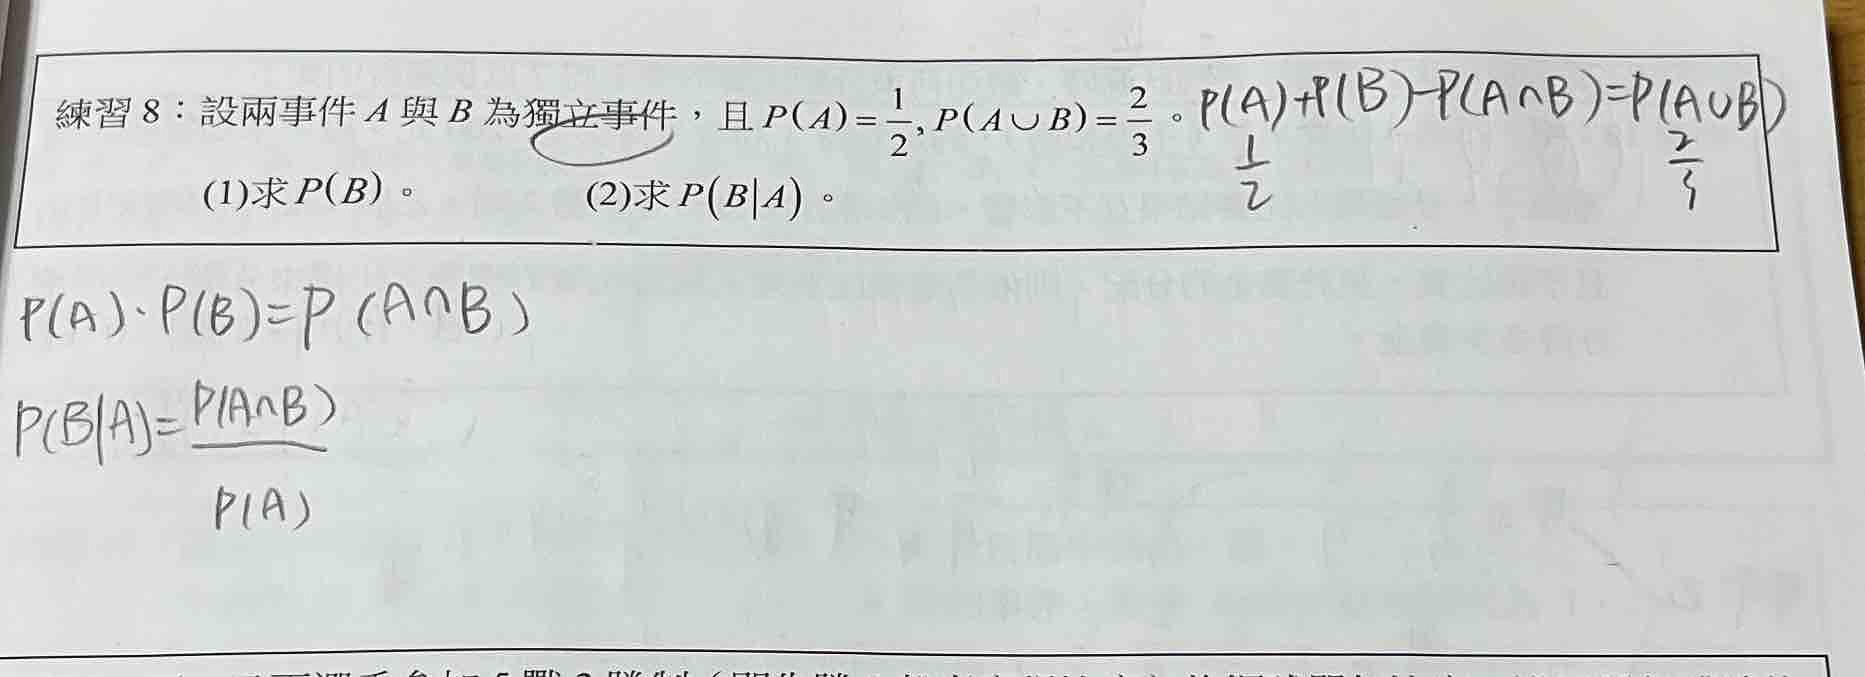 練習 8：設兩事件 A 與 B 為獨立事件，且 P(A)=1/2, P(A∪B)=2/3。 P(A)+P(B)-P(A∩B)=P(A∪B)
1/2 2/3
(1)求 P(B)。 (2)求 P(B|A)。
P(A)·P(B)=P(A∩B)
P(B|A)=P(A∩B)/P(A)